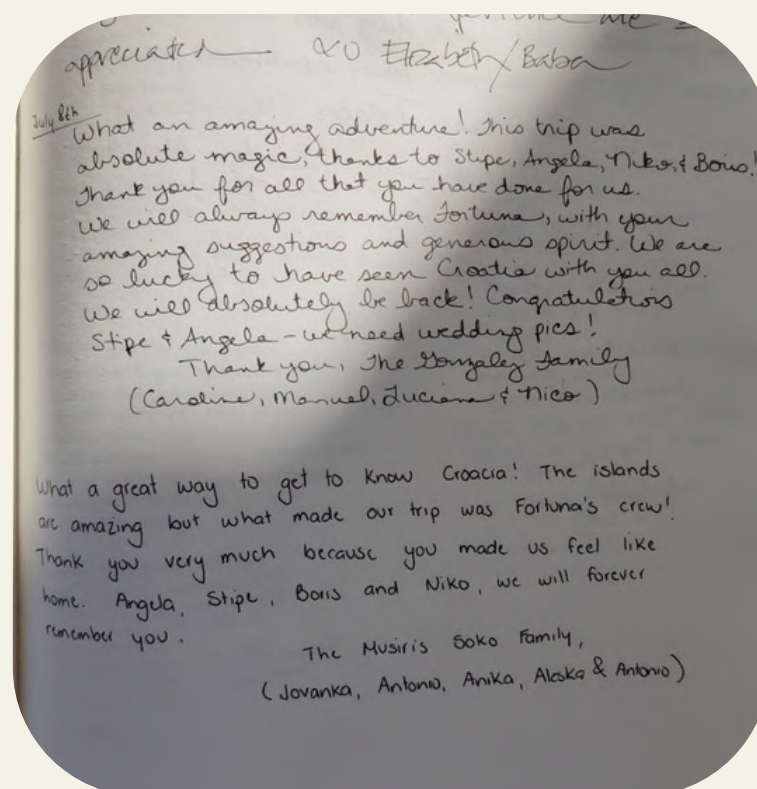 are
appreciated XO Elizabeth/Baba
July 8th
What an amazing adventure! This trip was
absolute magic, thanks to Stipe, Angela, Niko, & Boris!
Thank you for all that you have done for us.
We will always remember Fortuna, with your
amazing suggestions and generous spirit. We are
so lucky to have seen Croatia with you all.
We will absolutely be back! Congratulations
Stipe & Angela - we need wedding pics!
Thank you, The Gonzalez Family
(Caroline, Manuel, Luciana & Nico)
What a great way to get to know Croacia! The islands
are amazing but what made our trip was Fortuna's crew!
Thank you very much because you made us feel like
home. Angela, Stipe, Boris and Niko, we will forever
remember you.
The Musiris Soko Family,
(Jovanka, Antonio, Anika, Aleska & Antonio)